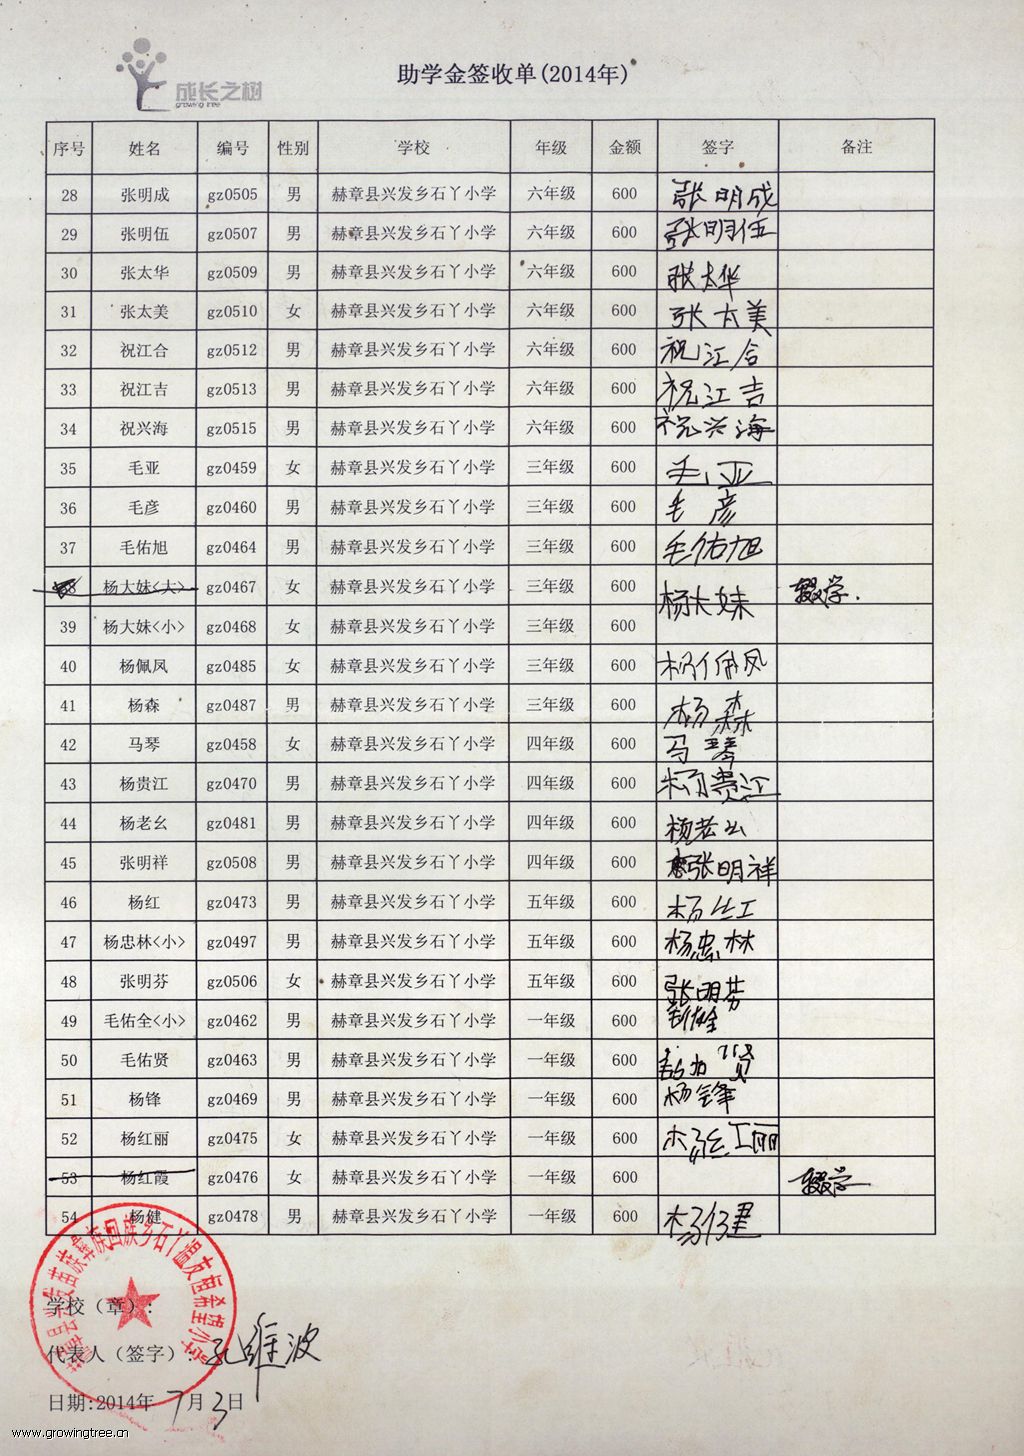 成长之树
growing tree
助学金签收单(2014年)
序号 姓名 编号 性别 学校 年级 金额 签字 备注
28 张明成 gz0505 男 赫章县兴发乡石丫小学 六年级 600 张明成
29 张明伍 gz0507 男 赫章县兴发乡石丫小学 六年级 600 张明伍
30 张太华 gz0509 男 赫章县兴发乡石丫小学 六年级 600 张太华
31 张太美 gz0510 女 赫章县兴发乡石丫小学 六年级 600 张太美
32 祝江合 gz0512 男 赫章县兴发乡石丫小学 六年级 600 祝江合
33 祝江吉 gz0513 男 赫章县兴发乡石丫小学 六年级 600 祝江吉
34 祝兴海 gz0515 男 赫章县兴发乡石丫小学 六年级 600 祝兴海
35 毛亚 gz0459 女 赫章县兴发乡石丫小学 三年级 600 毛亚
36 毛彦 gz0460 男 赫章县兴发乡石丫小学 三年级 600 毛彦
37 毛佑旭 gz0464 男 赫章县兴发乡石丫小学 三年级 600 毛佑旭
38 杨大妹<大> gz0467 女 赫章县兴发乡石丫小学 三年级 600 辍学.
39 杨大妹<小> gz0468 女 赫章县兴发乡石丫小学 三年级 600 杨大妹
40 杨佩凤 gz0485 女 赫章县兴发乡石丫小学 三年级 600 杨佩凤
41 杨森 gz0487 男 赫章县兴发乡石丫小学 三年级 600 杨森
42 马琴 gz0458 女 赫章县兴发乡石丫小学 四年级 600 马琴
43 杨贵江 gz0470 男 赫章县兴发乡石丫小学 四年级 600 杨贵江
44 杨老幺 gz0481 男 赫章县兴发乡石丫小学 四年级 600 杨老幺
45 张明祥 gz0508 男 赫章县兴发乡石丫小学 四年级 600 张明祥
46 杨红 gz0473 男 赫章县兴发乡石丫小学 五年级 600 杨红
47 杨忠林<小> gz0497 男 赫章县兴发乡石丫小学 五年级 600 杨忠林
48 张明芬 gz0506 女 赫章县兴发乡石丫小学 五年级 600 张明芬
49 毛佑全<小> gz0462 男 赫章县兴发乡石丫小学 一年级 600
50 毛佑贤 gz0463 男 赫章县兴发乡石丫小学 一年级 600
51 杨锋 gz0469 男 赫章县兴发乡石丫小学 一年级 600 杨锋
52 杨红丽 gz0475 女 赫章县兴发乡石丫小学 一年级 600 杨红丽
53 杨红霞 gz0476 女 赫章县兴发乡石丫小学 一年级 600 辍学
54 杨健 gz0478 男 赫章县兴发乡石丫小学 一年级 600 杨健
学校（章）:
代表人（签字）: 孔维波
日期:2014年 7月3日
www.growingtree.cn